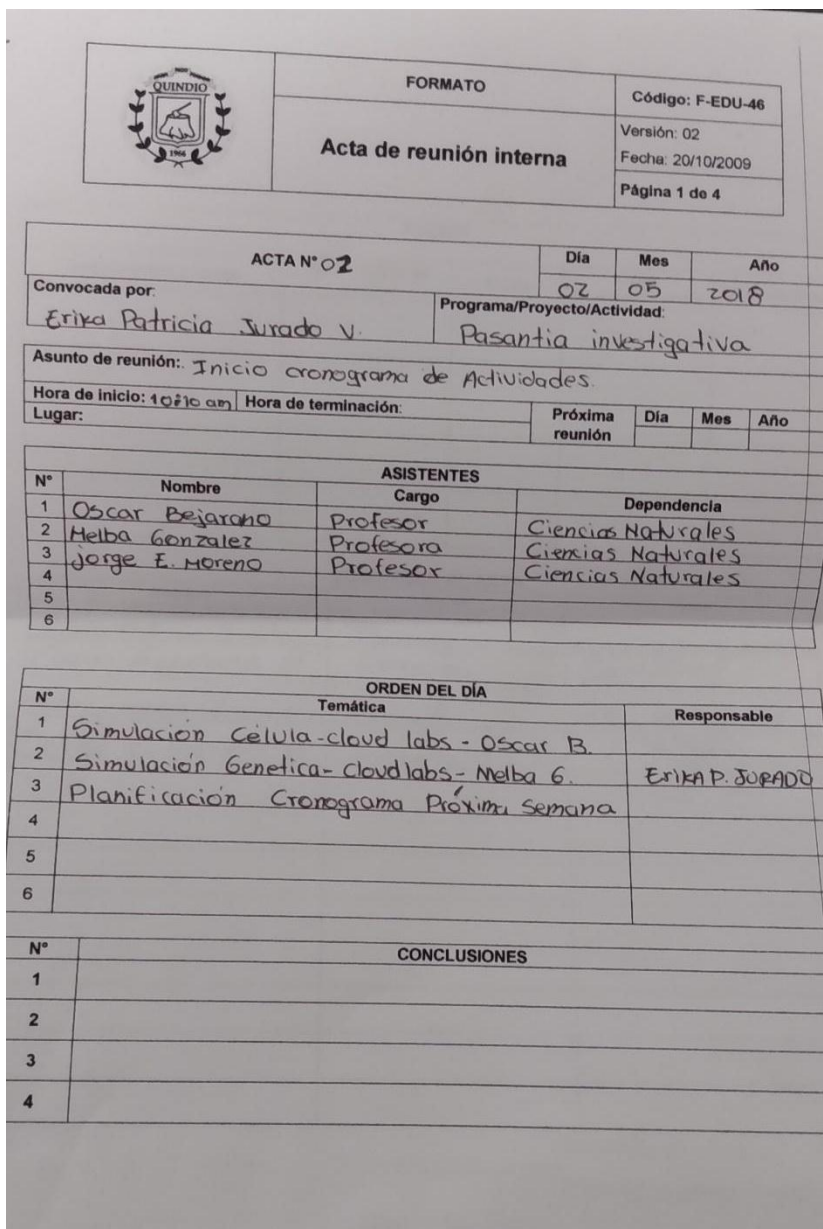 QUINDIO
1966
FORMATO
Acta de reunión interna
Código: F-EDU-46
Versión: 02
Fecha: 20/10/2009
Página 1 de 4
ACTA N° 02
Día Mes Año
02 05 2018
Convocada por:
Erika Patricia Jurado V.
Programa/Proyecto/Actividad:
Pasantia investigativa
Asunto de reunión:. Inicio cronograma de Actividades.
Hora de inicio: 10:10 am Hora de terminación:
Lugar:
Próxima reunión Día Mes Año
ASISTENTES
N° Nombre Cargo Dependencia
1 Oscar Bejarano Profesor Ciencias Naturales
2 Melba Gonzalez Profesora Ciencias Naturales
3 Jorge E. Moreno Profesor Ciencias Naturales
4
5
6
ORDEN DEL DÍA
N° Temática Responsable
1 Simulación Célula-cloud labs - Oscar B.
2 Simulación Genetica- Cloudlabs- Melba G. ErIKA P. JURADO
3 Planificación Cronograma Próxima Semana
4
5
6
N° CONCLUSIONES
1
2
3
4